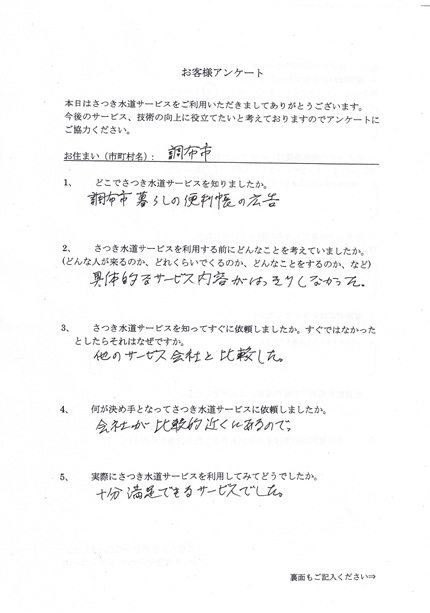 お客様アンケート
本日はさつき水道サービスをご利用いただきましてありがとうございます。
今後のサービス、技術の向上に役立てたいと考えておりますのでアンケートに
ご協力ください。
お住まい（市町村名）： 調布市
1、 どこでさつき水道サービスを知りましたか。
調布市暮らしの便利帳の広告
2、 さつき水道サービスを利用する前にどんなことを考えていましたか。
(どんな人が来るのか、どれくらいでくるのか、どんなことをするのか、など)
具体的なサービス内容がはっきりしなかった。
3、 さつき水道サービスを知ってすぐに依頼しましたか。すぐではなかった
としたらそれはなぜですか。
他のサービス会社と比較した。
4、 何が決め手となってさつき水道サービスに依頼しましたか。
会社が比較的近くにあるので。
5、 実際にさつき水道サービスを利用してみてどうでしたか。
十分満足できるサービスでした。
裏面もご記入ください⇒